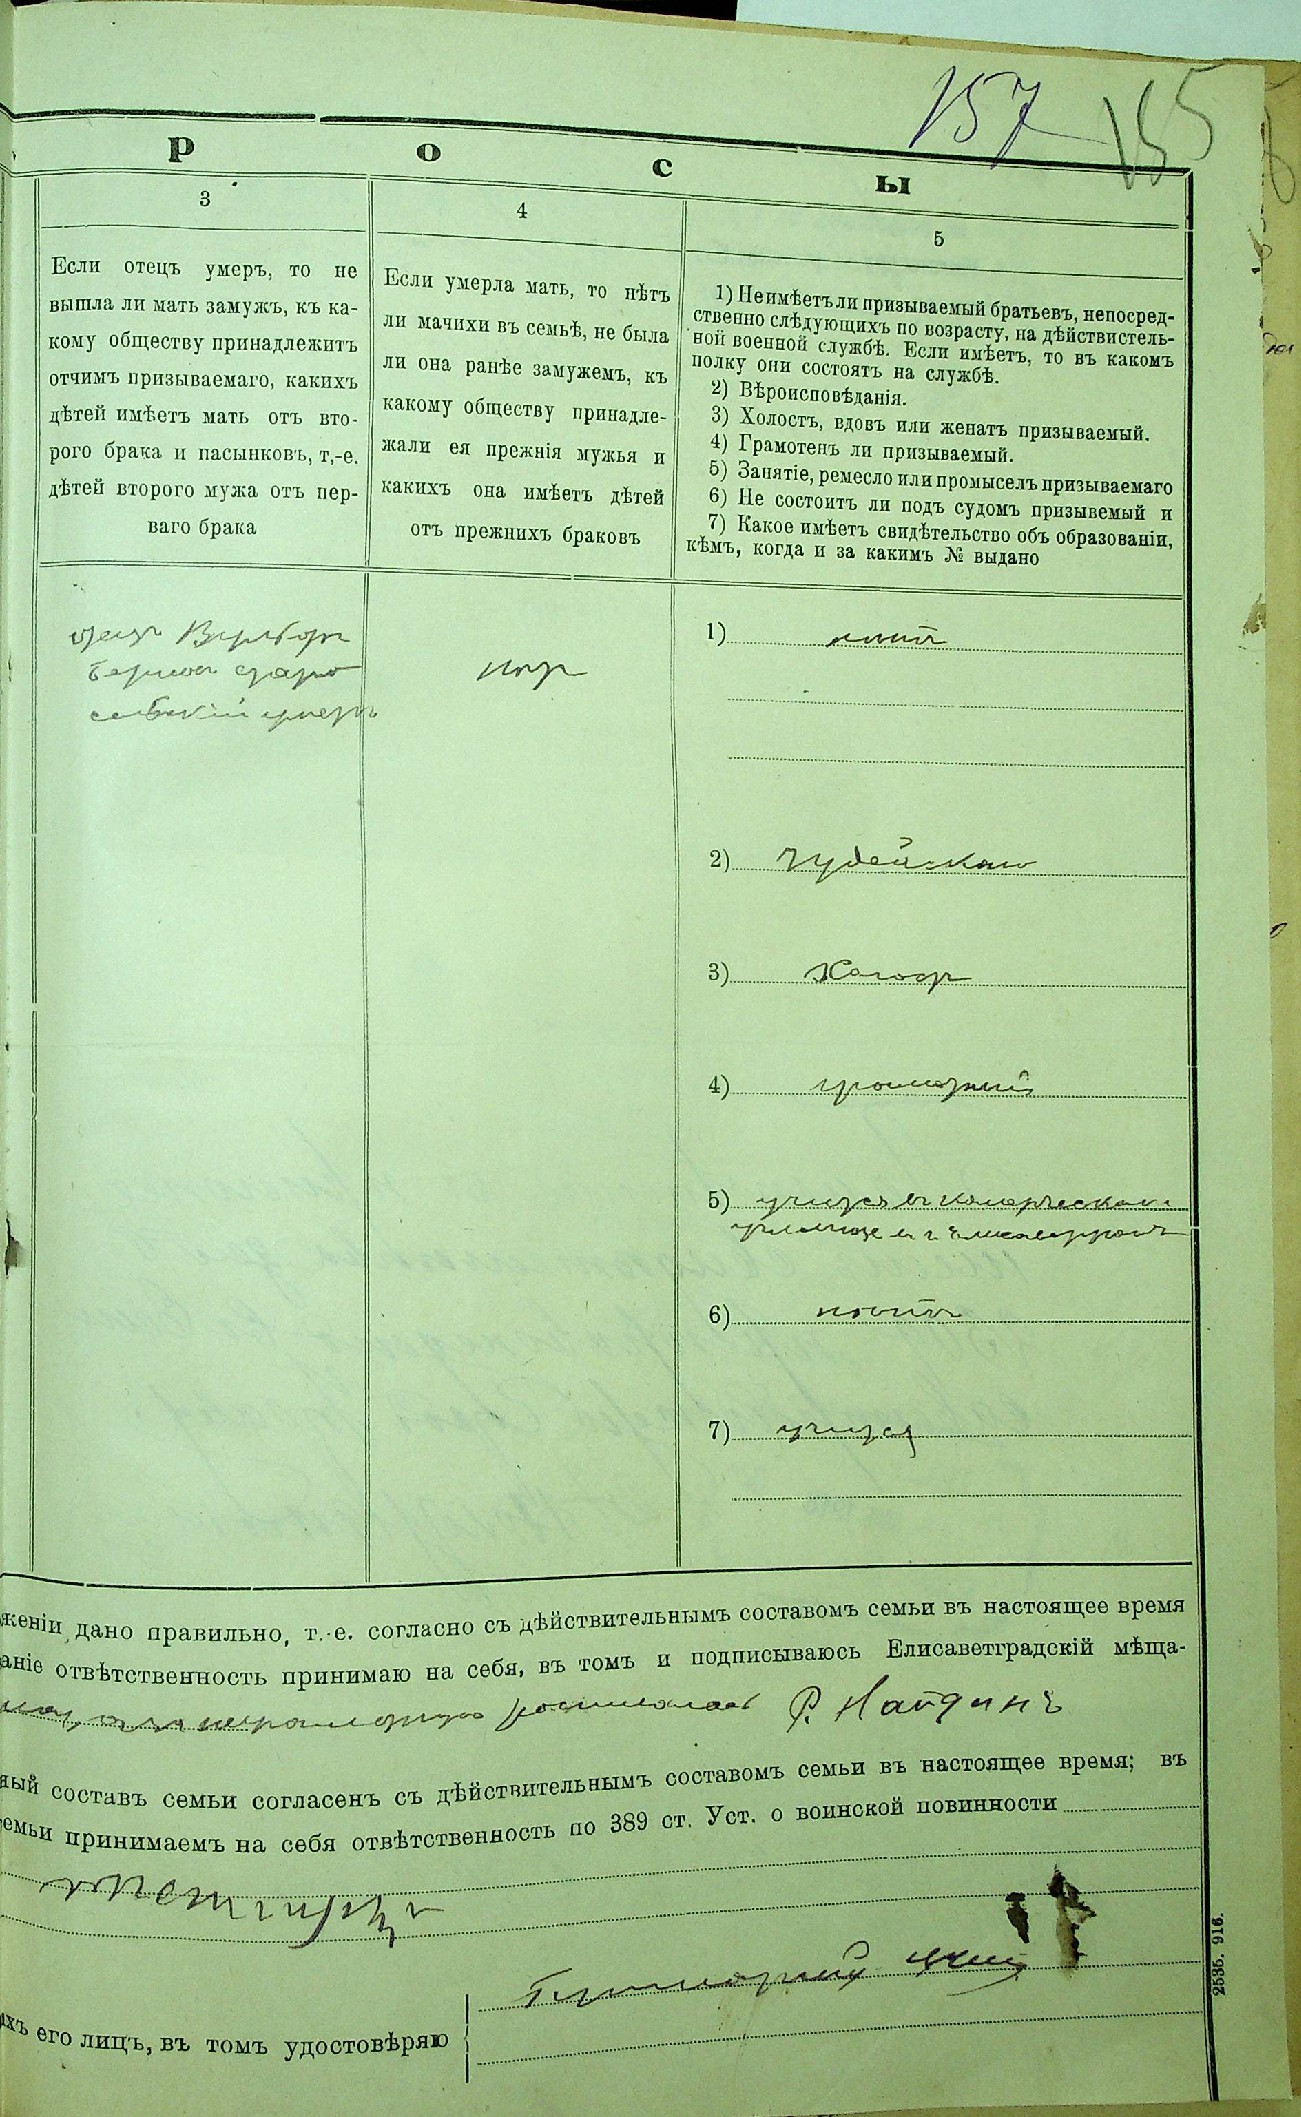 157 155
РОСЫ
3
Если отецъ умеръ, то не
вышла ли мать замужъ, къ ка-
кому обществу принадлежитъ
отчимъ призываемаго, какихъ
дѣтей имѣетъ мать отъ вто-
рого брака и пасынковъ, т.-е.
дѣтей второго мужа отъ пер-
ваго брака
4
Если умерла мать, то нѣтъ
ли мачихи въ семьѣ, не была
ли она ранѣе замужемъ, къ
какому обществу принадле-
жали ея прежнія мужья и
какихъ она имѣетъ дѣтей
отъ прежнихъ браковъ
5
1) Неимѣетъ ли призываемый братьевъ, непосред-
ственно слѣдующихъ по возрасту, на дѣйствитель-
ной военной службѣ. Если имѣетъ, то въ какомъ
полку они состоятъ на службѣ.
2) Вѣроисповѣданія.
3) Холостъ, вдовъ или женатъ призываемый.
4) Грамотенъ ли призываемый.
5) Занятіе, ремесло или промыселъ призываемаго
6) Не состоитъ ли подъ судомъ призывемый и
7) Какое имѣетъ свидѣтельство объ образованіи,
кѣмъ, когда и за какимъ № выдано
отецъ
умеръ
нѣтъ
1) нѣтъ
2) Іудейскаго
3) Холостъ
4) грамотный
5) учится въ комерческомъ
училище въ г
6) нѣтъ
7) учится
женіи дано правильно, т.-е. согласно съ дѣйствительнымъ составомъ семьи въ настоящее время
аніе отвѣтственность принимаю на себя, въ томъ и подписываюсь Елисаветградскій мѣща-
Р. Найдинъ
ный составъ семьи согласенъ съ дѣйствительнымъ составомъ семьи въ настоящее время; въ
емьи принимаемъ на себя отвѣтственность по 389 ст. Уст. о воинской повинности
ихъ его лицъ, въ томъ удостовѣряю
2535. 916.